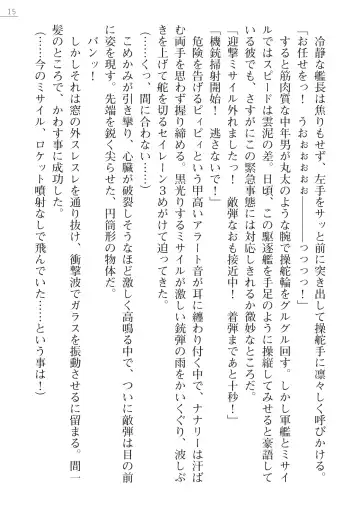 15
冷静な艦長は焦りもせず、左手をサッと前に突き出して操舵手に凛々しく呼びかける。
「お任せをっ！　うおぉぉぉぉぉ――――――つつつっ！」
すると筋肉質な中年男が丸太のような腕で操舵輪をグルグル回す。しかし軍艦とミサイ
ルではスピードは雲泥の差。日頃、この駆逐艦を手足のように操縦してみせると豪語して
いる彼でも、さすがにこの緊急事態には対応しきれるか微妙なところだ。
「迎撃ミサイル外れましたっ！　敵弾なおも接近中！　着弾まであと十秒！」
「機銃掃射開始！　逃さないで！」
危険を告げるピィピィという甲高いアラート音が耳に纏わり付く中で、ナナリーは汗ば
む両手を思わず握り締める。黒光りするミサイルが激しい銃弾の雨をかいくぐり、波しぶ
きを上げて舵を切るセイレーン３めがけて迫ってきた。
（……くっ、間に合わない……）
こめかみが引き攣り、心臓が破裂しそうなほど激しく高鳴る中で、ついに敵弾は目の前
に姿を現す。先端を鋭く尖らせた、円筒形の物体だ。
バンッ！
しかしそれは窓の外スレスレを通り抜け、衝撃波でガラスを振動させるに留まる。間一
髪のところで、かわす事に成功した。
（……今のミサイル、ロケット噴射なしで飛んでいた……という事は！）